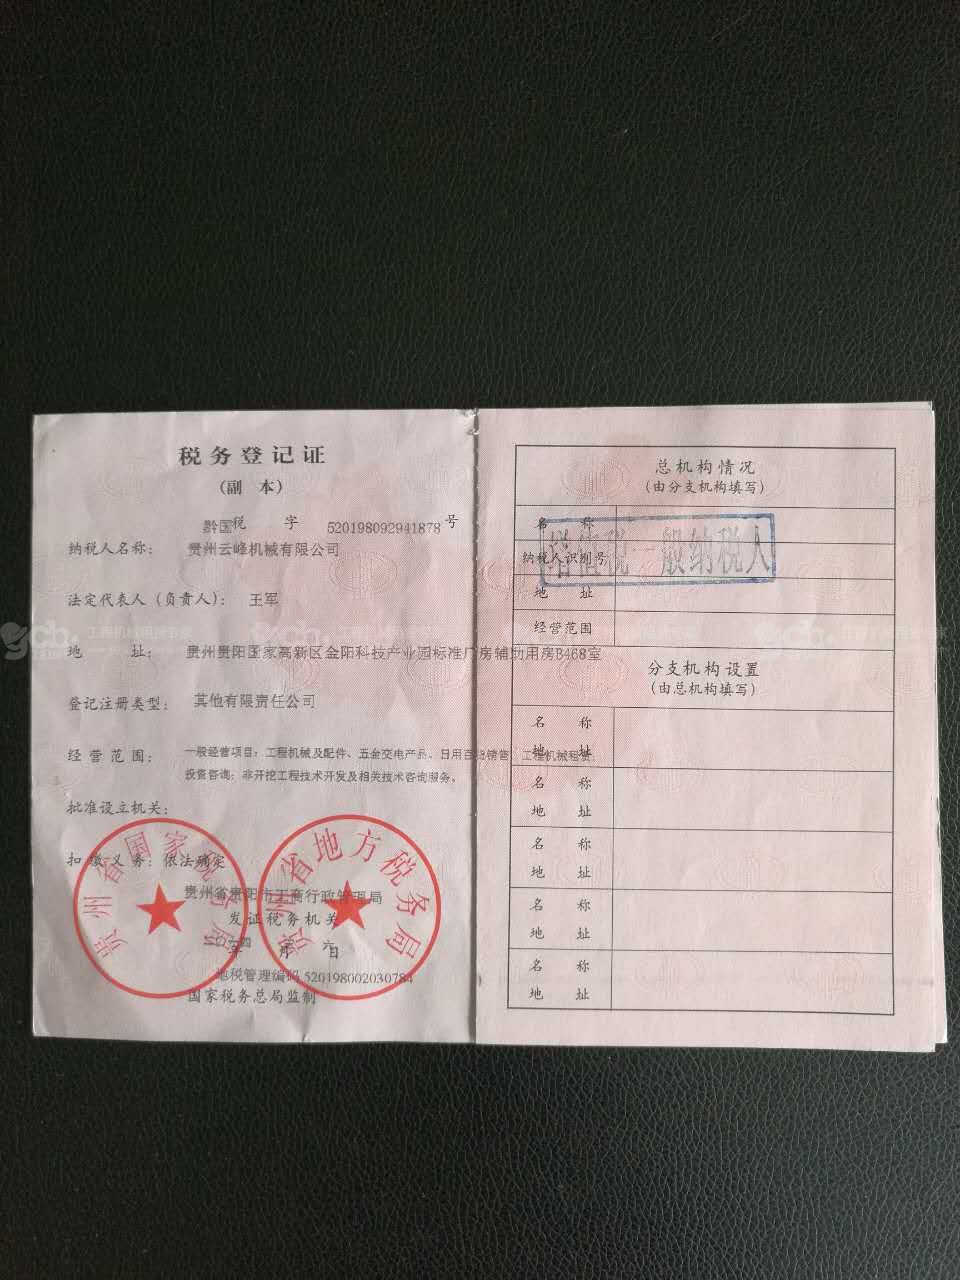 税务登记证
(副 本)
黔国税 字 520198092941878 号
纳税人名称： 贵州云峰机械有限公司
法定代表人（负责人）： 王军
地 址： 贵州贵阳国家高新区金阳科技产业园标准厂房辅助用房B468室
登记注册类型： 其他有限责任公司
经营范围： 一般经营项目：工程机械及配件、五金交电产品、日用百货销售；工程机械租赁；
投资咨询；非开挖工程技术开发及相关技术咨询服务。
批准设立机关：
扣缴义务：依法确定
贵州省贵阳市工商行政管理局
发证税务机关
年 月 六 日
地税管理编码 520198002030784
国家税务总局监制
贵州省国家税务局
贵州省地方税务局
总机构情况
(由分支机构填写)
名 称
纳税人识别号
地 址
经营范围
增值税一般纳税人
分支机构设置
(由总机构填写)
名 称
地 址
名 称
地 址
名 称
地 址
名 称
地 址
名 称
地 址
工程机械租赁专家